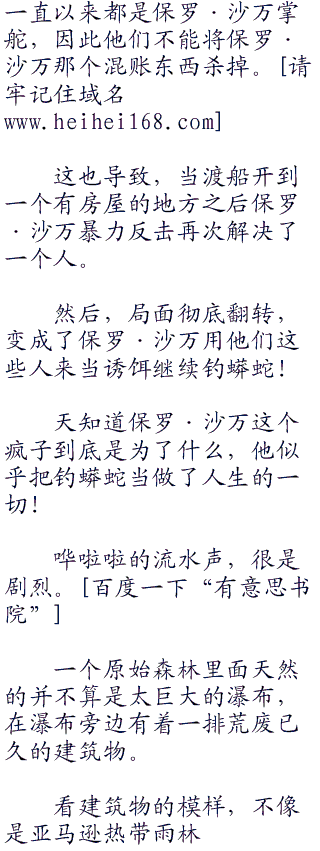 一直以来都是保罗·沙万掌
舵，因此他们不能将保罗·
沙万那个混账东西杀掉。[请
牢记住域名
www.heihei168.com]
这也导致，当渡船开到
一个有房屋的地方之后保罗
·沙万暴力反击再次解决了
一个人。
然后，局面彻底翻转，
变成了保罗·沙万用他们这
些人来当诱饵继续钓蟒蛇！
天知道保罗·沙万这个
疯子到底是为了什么，他似
乎把钓蟒蛇当做了人生的一
切！
哗啦啦的流水声，很是
剧烈。[百度一下“有意思书
院”]
一个原始森林里面天然
的并不算是太巨大的瀑布，
在瀑布旁边有着一排荒废已
久的建筑物。
看建筑物的模样，不像
是亚马逊热带雨林